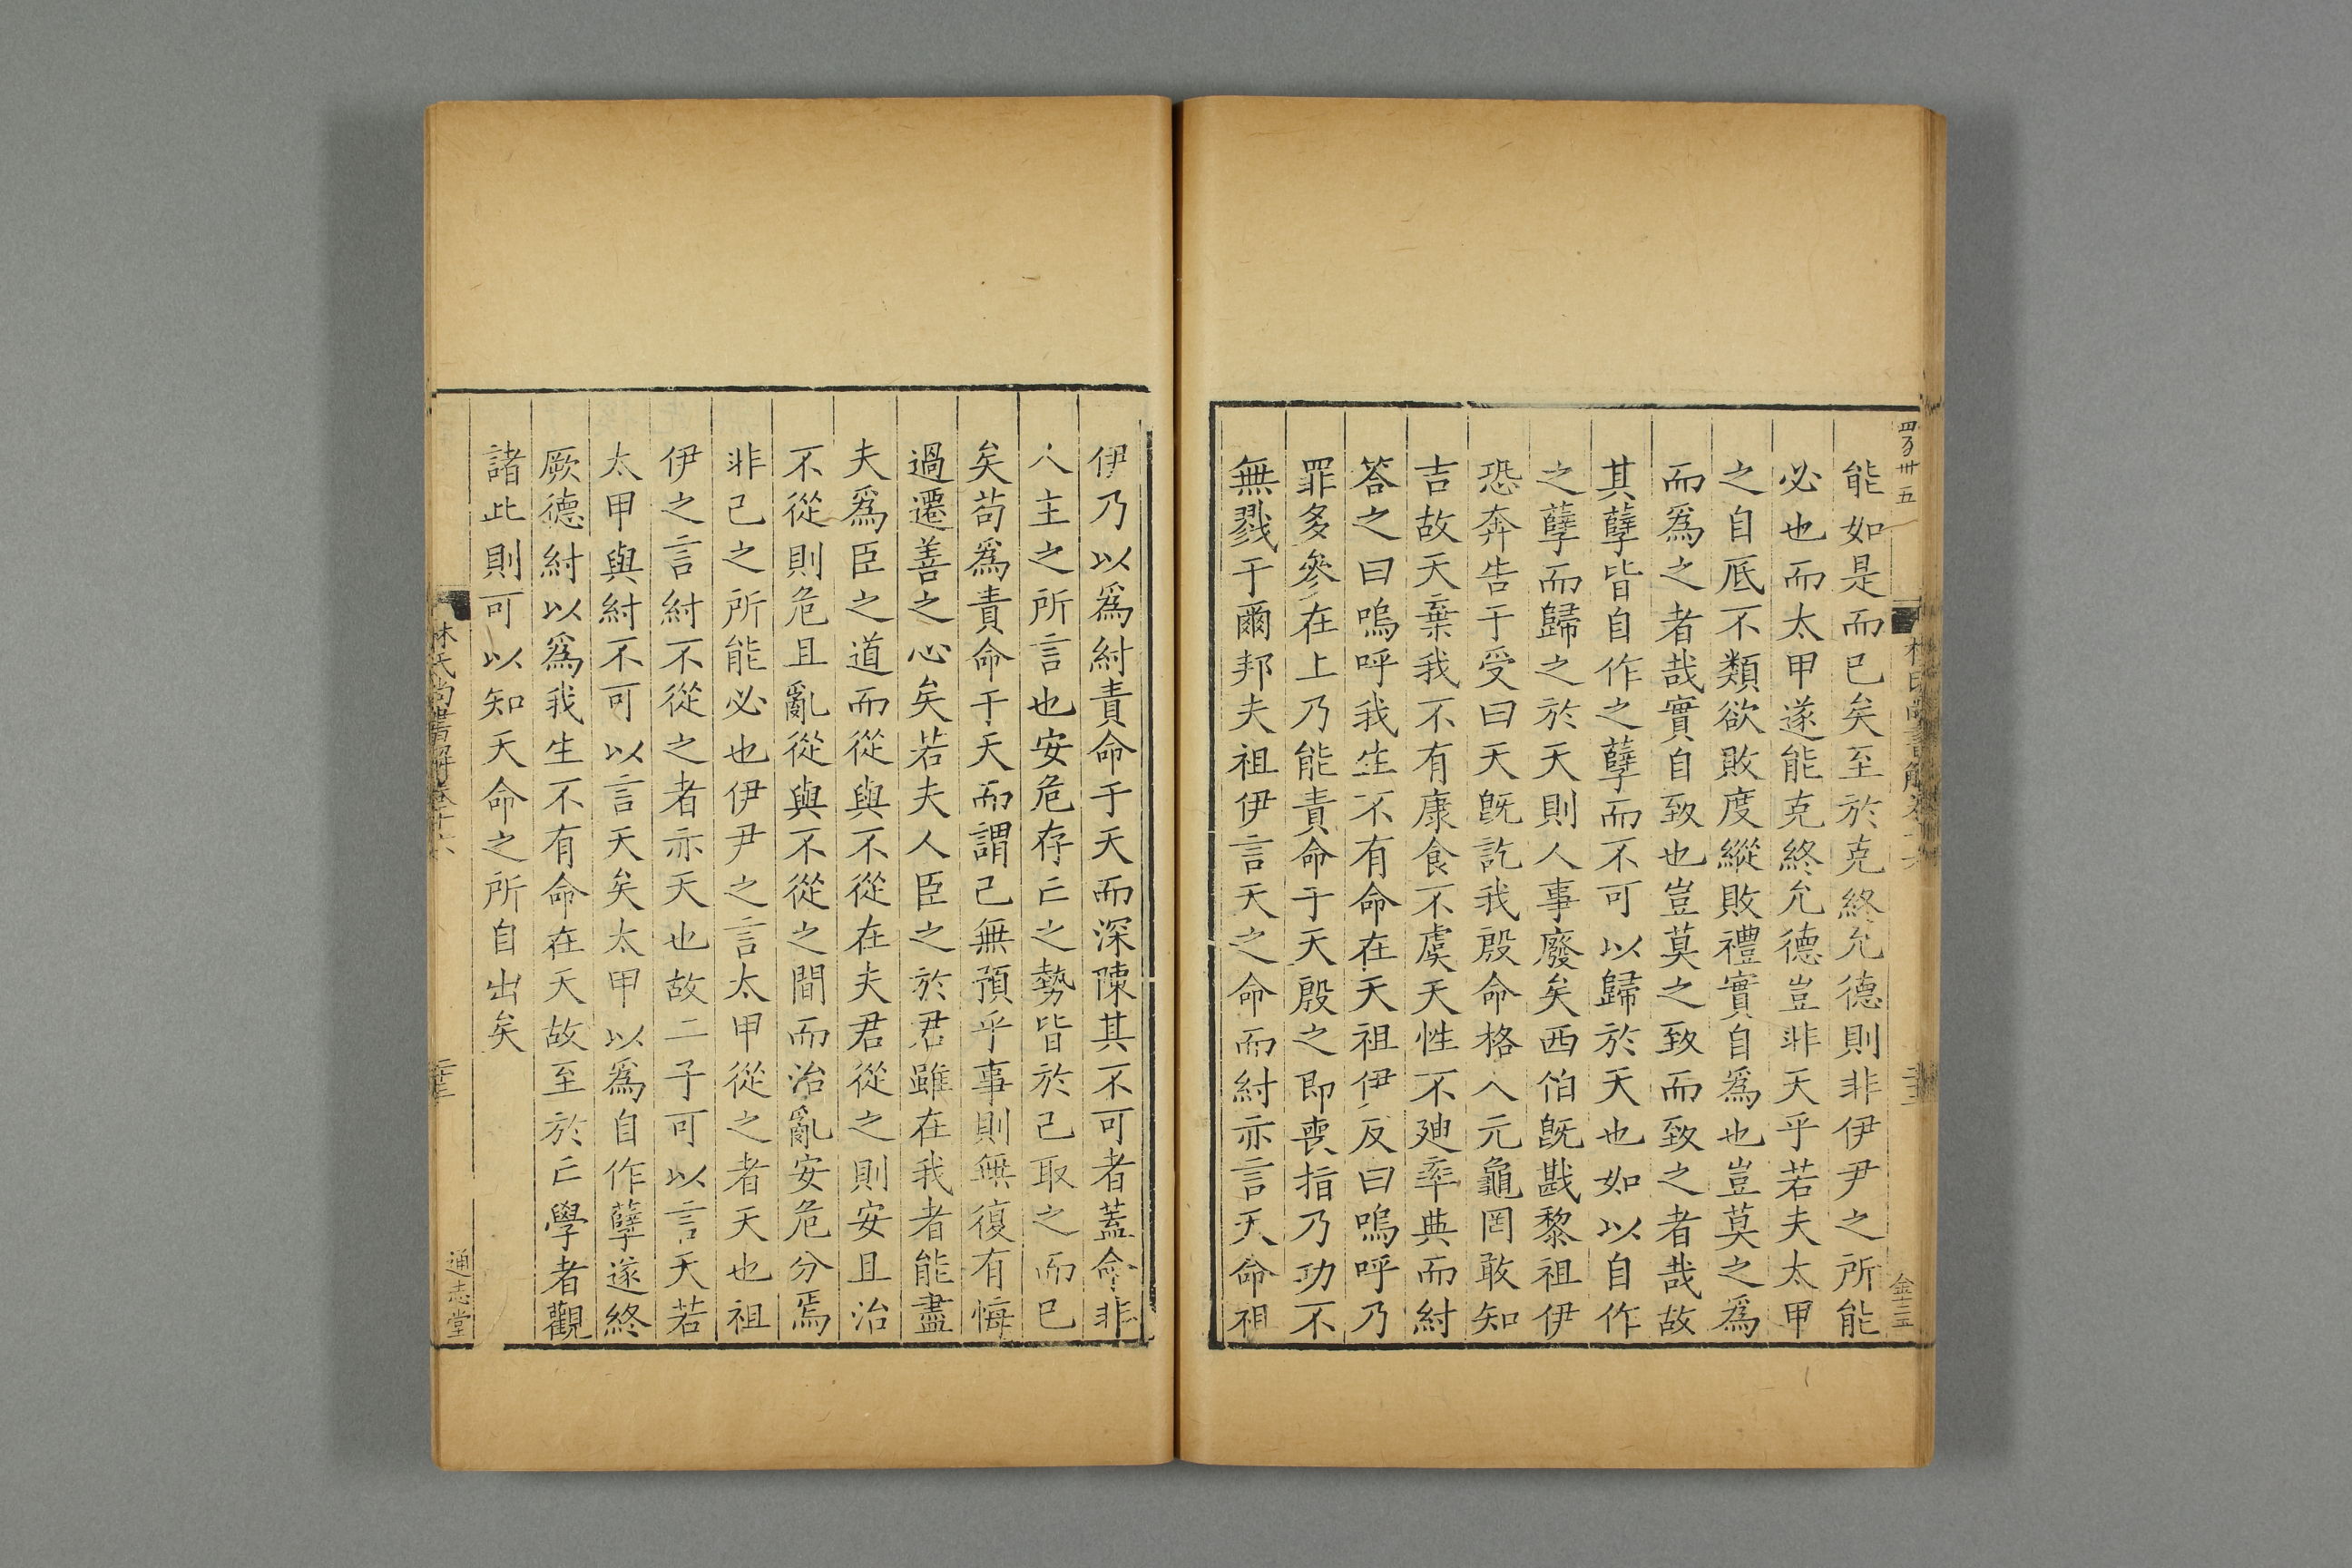 四百卅五
能如是而已矣至於克終允德則非伊尹之所能
必也而太甲遂能克終允德豈非天乎若夫太甲
之自底不類欲敗度縱敗禮實自為也豈莫之為
而爲之者哉實自致也豈莫之致而致之者哉故
其孽皆自作之孽而不可以歸於天也如以自作
之孽而歸之於天則人事廢矣西伯旣戡黎祖伊
恐奔告于受曰天旣訖我殷命格人元龜罔敢知
吉故天棄我不有康食不虞天性不迪率典而紂
荅之曰嗚呼我生不有命在天祖伊反曰嗚呼乃
罪多參在上乃能責命于天殷之即喪指乃功不
無戮于爾邦夫祖伊言天之命而紂亦言天命祖
伊乃以爲紂責命于天而深陳其不可者蓋命非
人主之所言也安危存亡之勢皆於己取之而已
矣苟爲責命于天而謂己無預乎事則無復有悔
過遷善之心矣若夫人臣之於君雖在我者能盡
夫爲臣之道而從與不從在夫君從之則安且治
不從則危且亂從與不從之間而治亂安危分焉
非己之所能必也伊尹之言太甲從之者天也祖
伊之言紂不從之者亦天也故二子可以言天若
太甲與紂不可以言天矣太甲以爲自作孽遂終
厥德紂以爲我生不有命在天故至於亡學者觀
諸此則可以知天命之所自出矣
林氏尚書解卷十六
通志堂